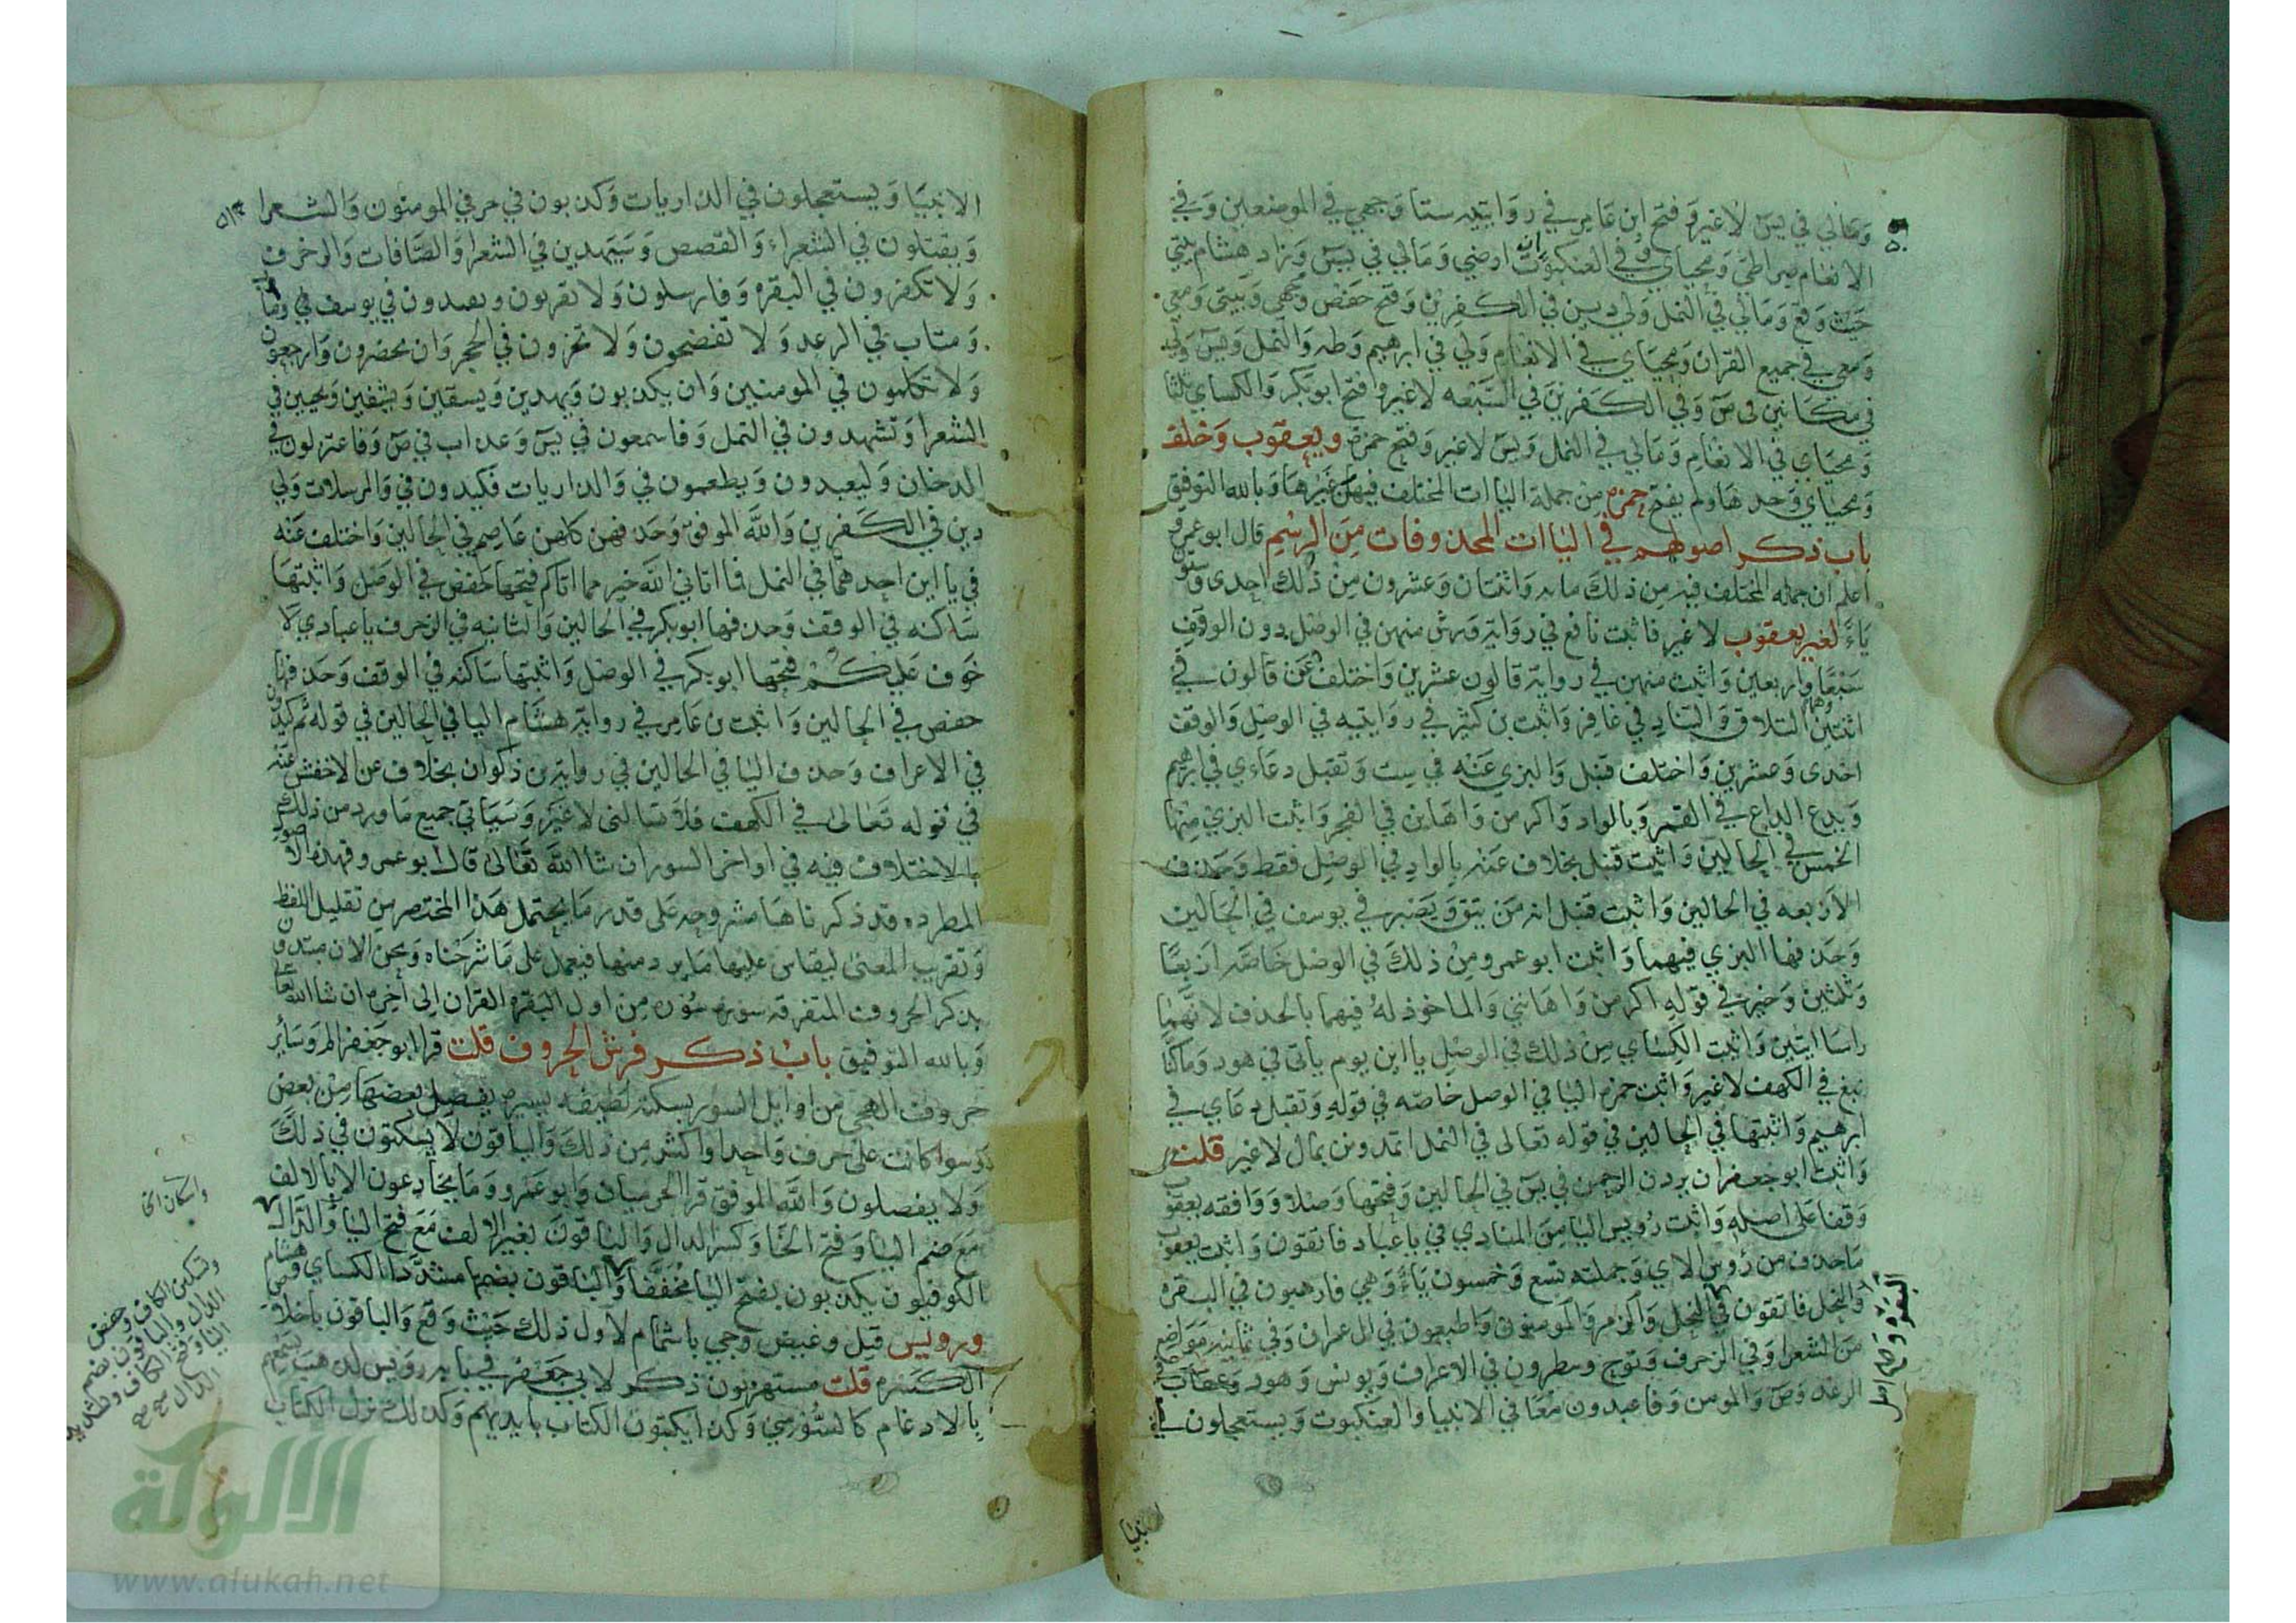 ومالي في يس لا غير وفتح ابن عامر في روايتيه ستا وجهي في الموضعين وفي
الانعام صراطي ومحياي وفي العنكبوت ان ارضي ومالي في يس وزاد هشام بيتي
حيث وقع ومالي في النمل ولي دين في الكفرين وفتح حفص وجهي وبيتي ومعي
ومعي في جميع القران ومحياي في الانعام ولي في ابرهيم وطه والنمل ويس ولي
في مكانين في ص وفي الكفرين في السبعه لا غير وفتح ابو بكر والكساي ثلثا
ومحياي في الانعام ومالي في النمل ويس لا غير وفتح حمزة ويعقوب وخلف
ومحياي وحدها ولم يفتح حمزه من جملة الياات المختلف فيهن غيرها وبالله التوفيق
باب ذكر اصولهم في الياات المحذوفات من الرسم قال ابو عمرو
اعلم ان جمله المختلف فيه من ذلك مايه واثنتان وعشرون من ذلك احدى وستون
ياءً لغير يعقوب لا غير فاثبت نافع في رواية ورش منهن في الوصل دون الوقف
سبعا واربعين واثبت منهن في رواية قالون عشرين واختلف عن قالون في
اثنتين وهما التلاق والتناد في غافر واثبت بن كثير في روايتيه في الوصل والوقف
احدى وعشرين واختلف قنبل والبزي عنه في ست وتقبل دعاءي في ابرهيم
ويدع الداع في القمر وبالواد واكرمن واهانن في الفجر واثبت البزي منها
الخمس في الحالين واثبت قنبل بخلاف عنه بالواد في الوصل فقط وحذف
الاربعه في الحالين واثبت قنبل انه من يتق ويصبر في يوسف في الحالين
وحذفها البزي فيهما واثبت ابو عمرو من ذلك في الوصل خاصه اربعا
وثلثين وخير في قوله اكرمن واهانني والماخوذ له فيهما بالحذف لانهما
راسا ايتين واثبت الكساي من ذلك في الوصل ياين يوم ياتي في هود وما كنا
نبغ في الكهف لا غير واثبت حمزه اليا في الوصل خاصه في قوله وتقبل دعاي في
ابرهيم واثبتها في الحالين في قوله تعالى في النمل اتمدونن بمال لا غير قلت
واثبت ابو جعفر ان يردن الرحمن في يس في الحالين وفتحها وصلا ووافقه يعقوب
وقفا على اصله واثبت رويس اليا من المنادي في يا عباد فاتقون واثبت يعقوب
ما حذف من رؤس الاي وجملته تسع وخمسون ياءً وهي فارهبون في البقره
والنحل فاتقون في النحل والزمر والمومنون واطيعون في ال عمران وفي ثمانيه مواضع
من الشعرا وفي الزخرف ونوح وينظرون في الاعراف ويونس وهود وعقاب في
الرعد وص والمومن وفاعبدون معا في الانبيا والعنكبوت ويستعجلون في
الانبيا ويستعجلون في الذاريات وكذبون في حرفي المومنون والشعرا
ويقتلون في الشعراء والقصص وسيهدين في الشعرا والصافات والزخرف
ولا تكفرون في البقره وفارسلون ولا تقربون وتفندون في يوسف
ومتاب في الرعد ولا تفضحون ولا تخزون في الحجر وان يحضرون وارجعون
ولا تكلمون في المومنين وان يكذبون ويهدين ويسقين ويشفين ويحيين في
الشعرا وتشهدون في النمل وفاسمعون في يس وعذاب في ص وفاعتزلون في
الدخان وليعبدون ويطعمون في والذاريات فكيدون في والمرسلات ولي
دين في الكفرين والله الموفق وحذفهن كلهن عاصم في الحالين واختلف عنه
في ياين احدهما في النمل فما اتاني الله خير مما اتاكم فتحها حفص في الوصل واثبتها
ساكنه في الوقف وحذفها ابو بكر في الحالين والثانيه في الزخرف يا عبادي لا
خوف عليكم فتحها ابو بكر في الوصل واثبتها ساكنه في الوقف وحذفها
حفص في الحالين واثبت بن عامر في رواية هشام اليا في الحالين في قوله ثم كيدون
في الاعراف وحذف اليا في الحالين في رواية بن ذكوان بخلاف عن الاخفش عنه
في قوله تعالى في الكهف فلا تسالني لا غير وسياتي جميع ما ورد من ذلك
بالاختلاف فيه في اواخر السور ان شا الله تعالى قال ابو عمرو فهذه الاصول
المطرده قد ذكرناها مشروحه على قدر ما يحتمل هذا المختصر من تقليل اللفظ
وتقريب المعنى ليقاس عليها ما يرد منها فيعمل على ما شرحناه ونحن الان مبتدون
بذكر الحروف المتفرقه سورة سورة من اول البقره القران الى اخره ان شا الله تعالى
وبالله التوفيق باب ذكر فرش الحروف قلت قرا ابو جعفر الم وساير
حروف الهجي من اوايل السور بسكتة لطيفه يسيره يفصل بعضها من بعض
سوا كانت على حرف واحد او اكثر من ذلك والباقون لا يسكتون في ذلك
ولا يفصلون والله الموفق قرا الحرميان وابو عمرو وما يخادعون الا بالالف
مع ضم اليا وفتح الخا وكسر الدال والباقون بغير الالف مع فتح اليا والدال
الكوفيون يكذبون بفتح اليا مخففا والباقون بضمها مشددا الكساي وهشام
ورويس قيل وغيض وجي باشمام لاول ذلك حيث وقع والباقون باخلاص
الكسره قلت مستهزون ذكر لابي جعفر في بابه رويس لذهب بسمعهم
بالادغام كالسوسي وكذا يكتبون الكتاب بايديهم وكذلك نزل الكتاب
واسكان الخا
وتسكين الكاف وحفص
الدال والباقون بضم
اليا وفتح الكاف وتشديد
الدال صح صح
www.alukah.net
الألوكة